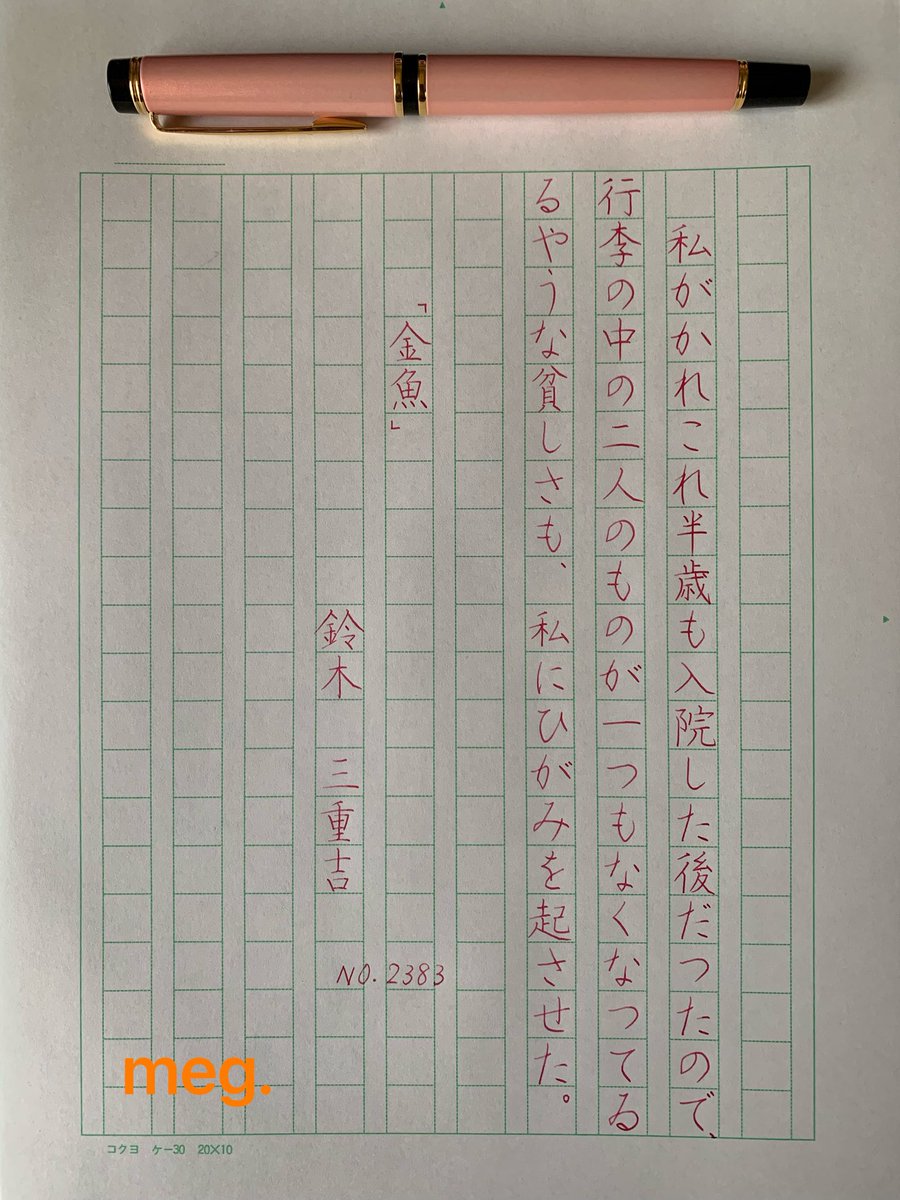 私がかれこれ半歳も入院した後だつたので、
行李の中の二人のものが一つもなくなつてゐ
るやうな貧しさも、私にひがみを起させた。
「金魚」
鈴木 三重吉
NO.2383
meg.
コクヨ ケ-30 20×10